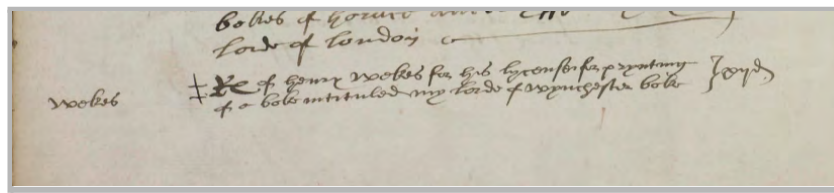 bokes of horace
lorde of london
wekes
Re of henry wekes for his lycense for pryntinge
of a boke intituled my lorde of wynchester boke xijd